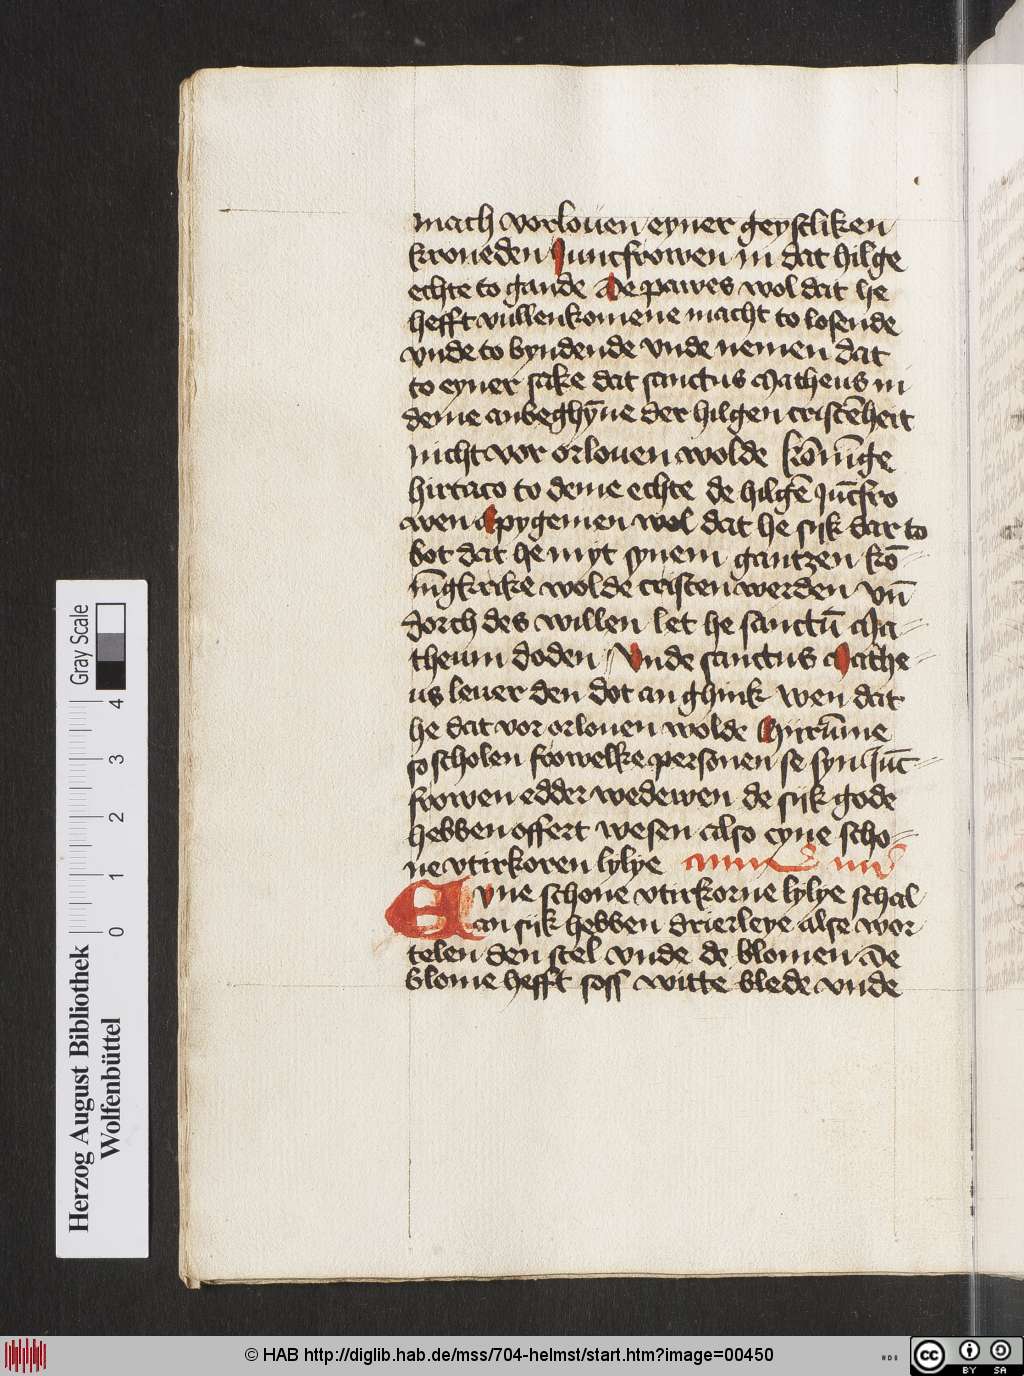 mach vorlouen eyner geystliken
kroneden Juncfrowen in dat hilge
echte to gande De pawes wol dat he
hefft vullenkomene macht to losende
vnde to byndende vnde nemen dat
to eyner sake dat sanctus Matheus in
deme anbeghȳne der hilgen cristēheit
nicht vor orlouen wolde kōnīge
hirtaco to deme echte de hilgē Jūcfro
wen Epygenien wol dat he sijk dar to
bot dat he myt synem gantzen kō-
nīgkrike wolde cristen werden vn̄
dorch des willen let he sanctū Ma-
theum doden Vnde sanctus Mathe-
us leuer den dot an ghink wen dat
he dat vor orlouen wolde Hyrūme
so scholen frowelke personen se syn Jūc-
frowen edder wedewen de sijk gode
hebben offert wesen also eyne scho-
ne vtirkoren lylye
Eyne schone vtirkorne lylye schal
an sijk hebben drierleye alse wor
telen den stel vnde de blomen De
blome hefft soss witte blede vnde
Herzog August Bibliothek
Wolfenbüttel
0 1 2 3 4
Gray Scale
© HAB http://diglib.hab.de/mss/704-helmst/start.htm?image=00450
HAB
cc BY SA